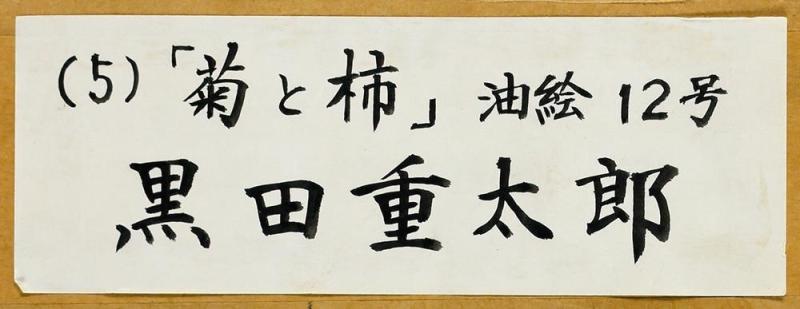 (5)「菊と柿」 油絵 12号
黒田重太郎